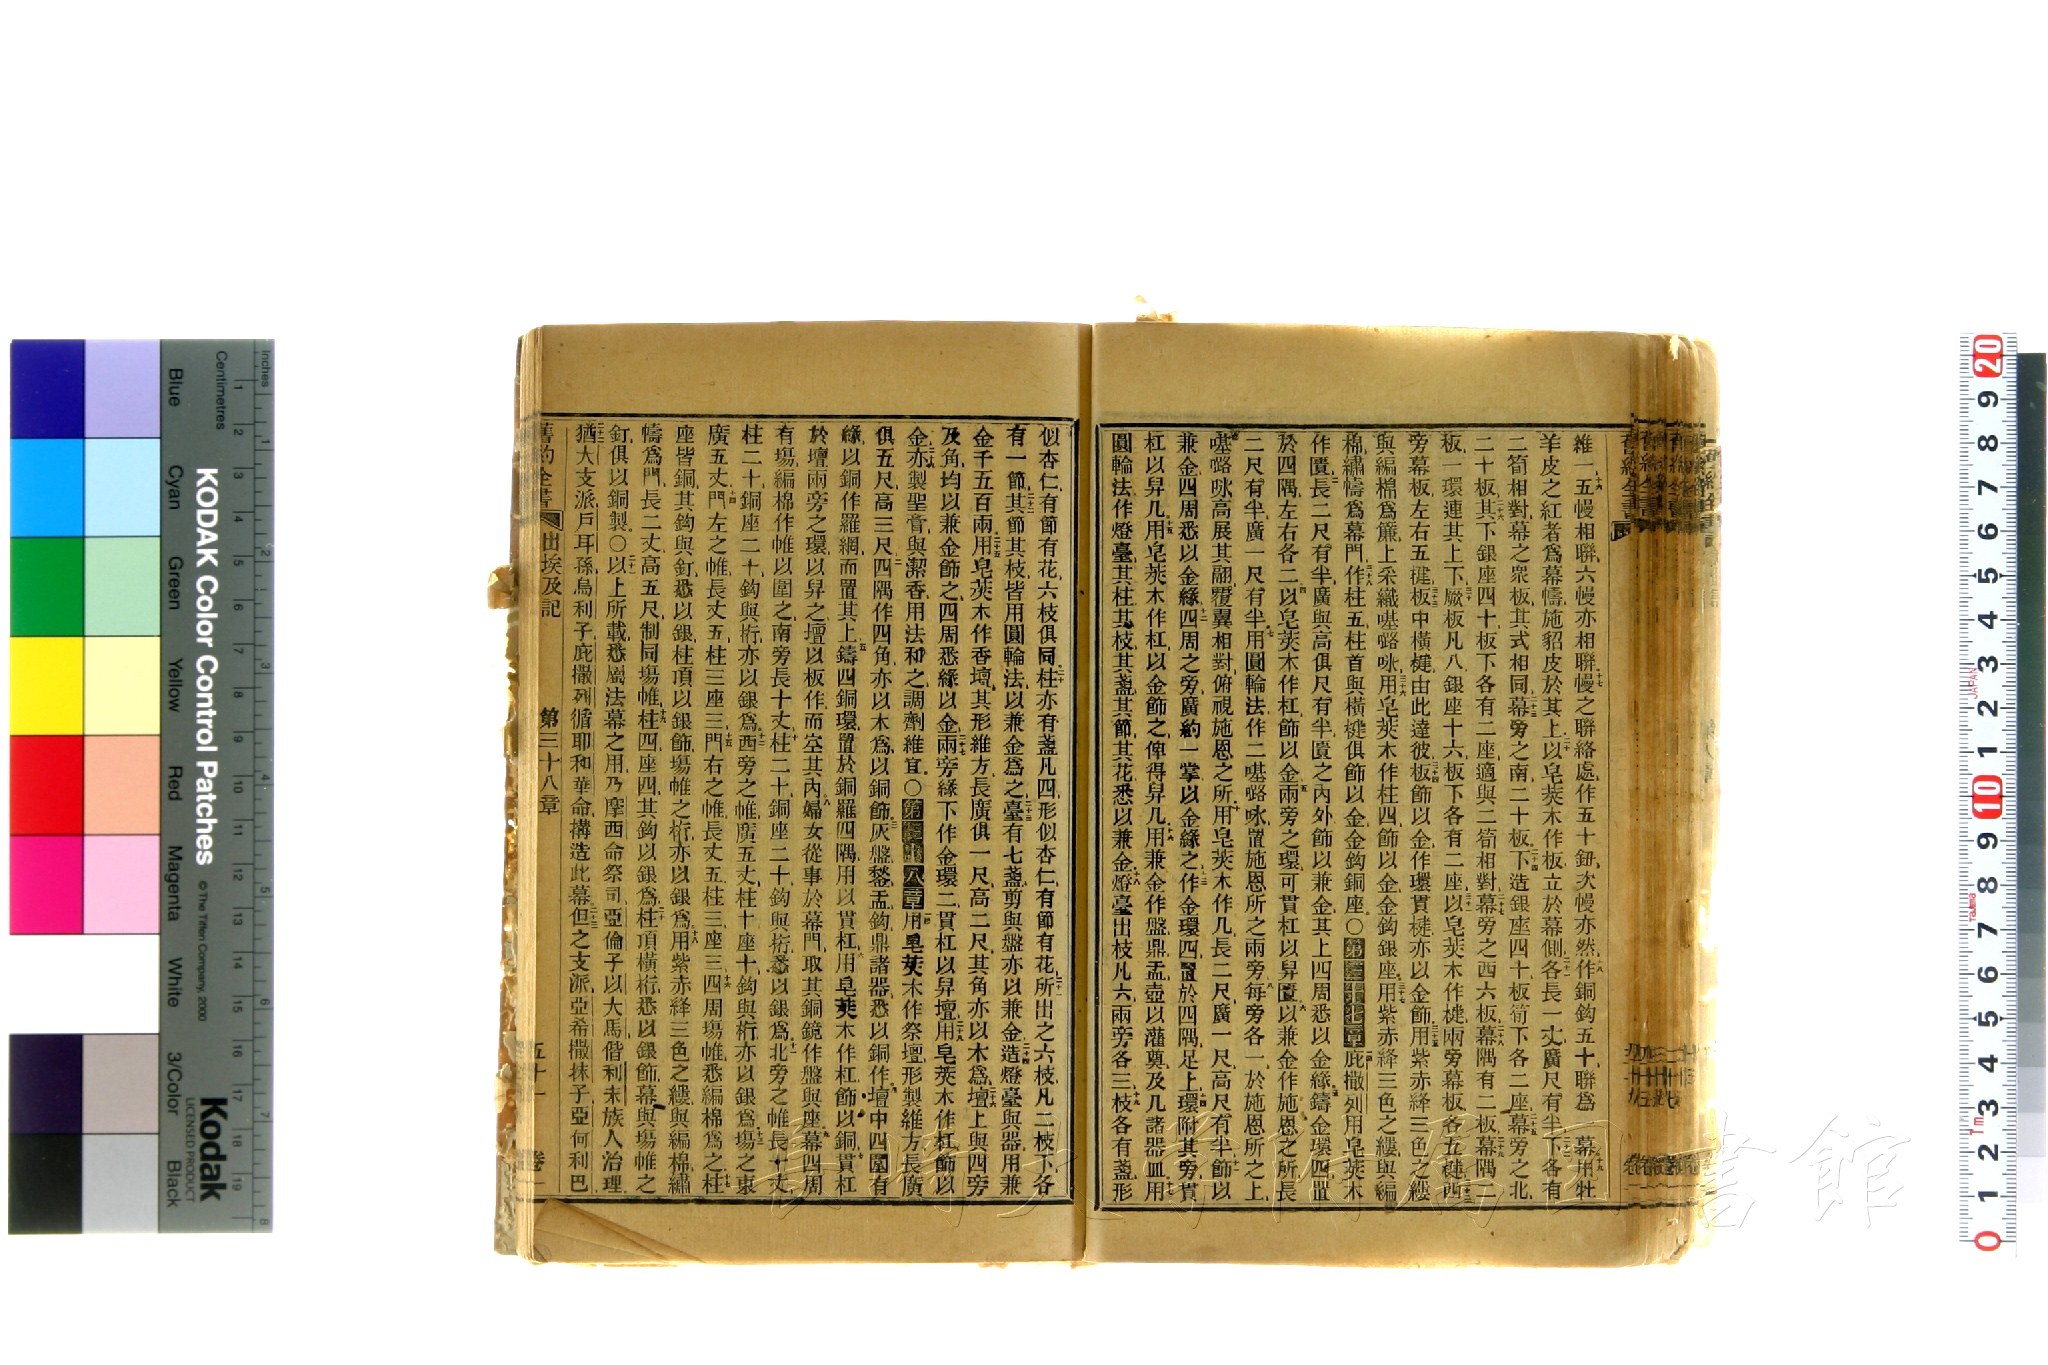 維一五幔相聯六幔亦相聯幔之聯絡處作五十鈕次幔亦然作銅鈎五十聯爲一幕用牡
羊皮之紅者爲幕幬施貂皮於其上以皂莢木作板立於幕側各長一丈廣尺有半下各有
二筍相對幕之衆板其式相同幕旁之南二十板下造銀座四十板筍下各二座幕旁之北
二十板其下銀座四十板下各有二座適與二筍相對幕旁之西六板幕隅有二板幕隅二
板一環連其上下厥板凡八銀座十六板下各有二座以皂莢木作楗兩旁幕板各五楗西
旁幕板左右五楗板中橫楗由此達彼板飾以金作環貫楗亦以金飾用紫赤絳三色之縷
與編棉爲簾上采織𠼻㗉𠺌用皂莢木作柱四飾以金金鈎銀座用紫赤絳三色之縷與編
棉繡幬爲幕門作柱五柱首與橫楗俱飾以金金鈎銅座〇第三十七章庇撒列用皂莢木
作匱長二尺有半廣與高俱尺有半匱之內外飾以兼金其上四周悉以金緣鑄金環四置
於四隅左右各二以皂莢木作杠飾以金兩旁之環可貫杠以舁匱以兼金作施恩之所長
二尺有半廣一尺有半用圓輪法作二𠼻㗉𠺌置施恩所之兩旁每旁各一於施恩所之上
𠼻㗉𠺌高展其翮覆翼相對俯視施恩之所用皂莢木作几長二尺廣一尺高尺有半飾以
兼金四周悉以金緣四周之旁廣約一掌以金緣之作金環四置於四隅足上環附其旁貫
杠以舁几用皂莢木作杠以金飾之俾得舁几用兼金作盤鼎盂壺以灌奠及几諸器皿用
圓輪法作燈臺其柱其枝其盞其節其花悉以兼金燈臺出枝凡六兩旁各三枝各有盞形
似杏仁有節有花六枝俱同柱亦有盞凡四形似杏仁有節有花所出之六枝凡二枝下各
有一節其節其枝皆用圓輪法以兼金爲之臺有七盞剪與盤亦以兼金造燈臺與器用兼
金千五百兩用皂莢木作香壇其形維方長廣俱一尺高二尺其角亦以木爲壇上與四旁
及角均以兼金飾之四周悉緣以金兩旁緣下作金環二貫杠以舁壇用皂莢木作杠飾以
金亦製聖膏與潔香用法和之調劑維宜〇第三十八章用皂莢木作祭壇形製維方長廣
俱五尺高三尺四隅作四角亦以木爲以銅飾灰盤鍫盂鈎鼎諸器悉以銅作壇中四圍有
緣以銅作羅網而置其上鑄四銅環置於銅羅四隅用以貫杠用皂莢木作杠飾以銅貫杠
於壇兩旁之環以舁之壇以板作而空其內婦女從事於幕門取其銅鏡作盤與座幕四周
有塲編棉作帷以圍之南旁長十丈柱二十銅座二十鈎與桁悉以銀爲北旁之帷長十丈
柱二十銅座二十鈎與桁亦以銀爲西旁之帷廣五丈柱十座十鈎與桁亦以銀爲塲之東
廣五丈門左之帷長丈五柱三座三門右之帷長丈五柱三座三四周塲帷悉編棉爲之柱
座皆銅其鈎與釘悉以銀柱頂以銀飾塲帷之桁亦以銀爲用紫赤絳三色之縷與編棉繡
幬爲門長二丈高五尺制同塲帷柱四座四其鈎以銀爲柱頂橫桁悉以銀飾幕與塲帷之
釘俱以銅製〇以上所載悉屬法幕之用乃摩西命祭司亞倫子以大馬偕利未族人治理
猶大支派戶耳孫烏利子庇撒列循耶和華命搆造此幕但之支派亞希撒抹子亞何利巴
舊約全書 出埃及記 第三十八章 五十一 卷一